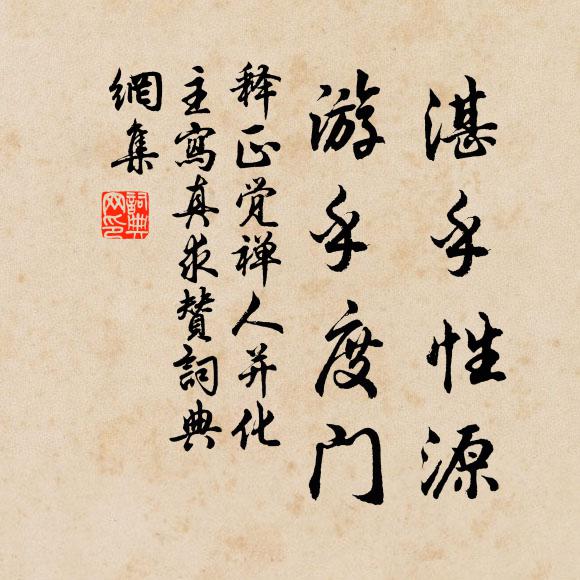 湛乎性源
游乎度门
释正觉禅人并化
主寫真求赞詞典
網集
詞典網印